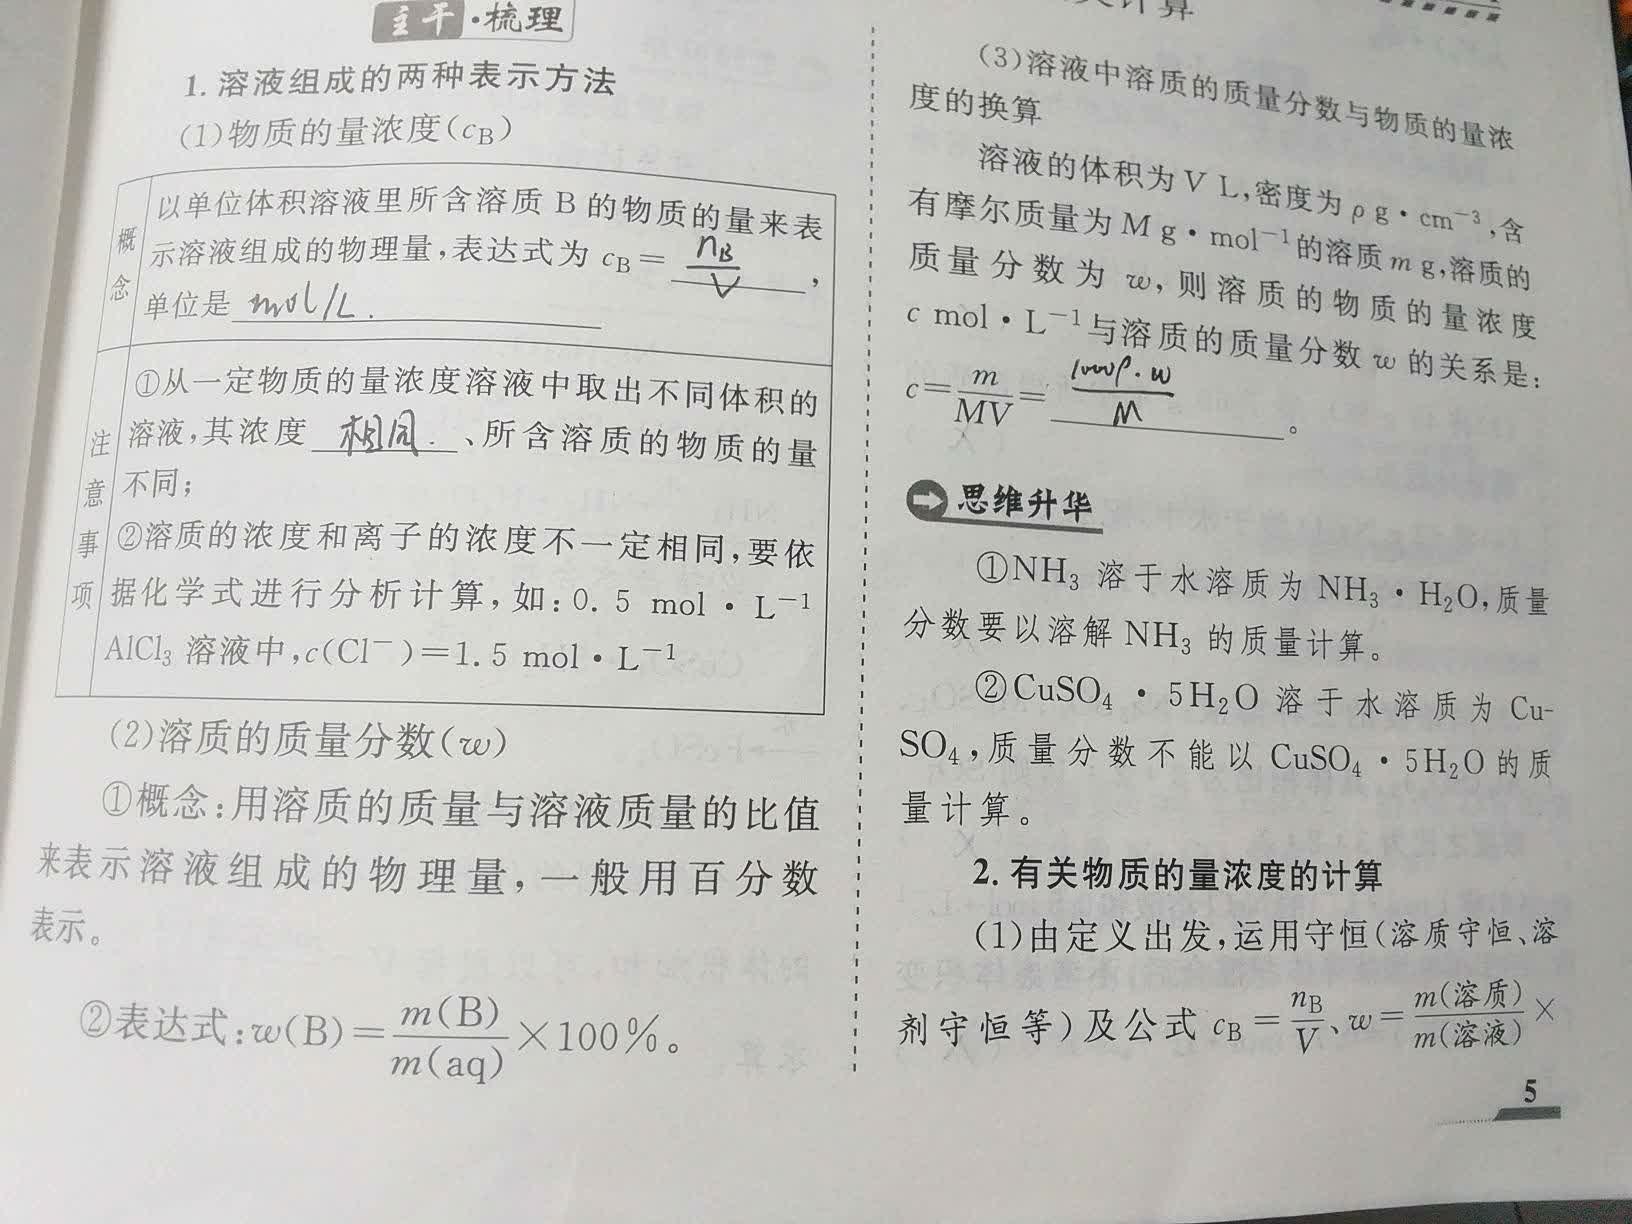 主干·梳理
1. 溶液组成的两种表示方法
(1)物质的量浓度(cB)
概念
以单位体积溶液里所含溶质 B 的物质的量来表
示溶液组成的物理量,表达式为 cB= nB/V ,
单位是 mol/L.
注意事项
①从一定物质的量浓度溶液中取出不同体积的
溶液,其浓度 相同. 、所含溶质的物质的量
不同;
②溶质的浓度和离子的浓度不一定相同,要依
据化学式进行分析计算,如:0. 5 mol · L⁻¹
AlCl₃ 溶液中,c(Cl⁻)=1. 5 mol·L⁻¹
(2)溶质的质量分数(w)
①概念:用溶质的质量与溶液质量的比值
来表示溶液组成的物理量,一般用百分数
表示。
②表达式:w(B)=m(B)/m(aq)×100%。
计算
(3)溶液中溶质的质量分数与物质的量浓
度的换算
溶液的体积为 V L,密度为 ρ g·cm⁻³,含
有摩尔质量为 M g·mol⁻¹的溶质 m g,溶质的
质量分数为 w,则溶质的物质的量浓度
c mol·L⁻¹与溶质的质量分数 w 的关系是:
c=m/MV= 1000ρ·w/M 。
思维升华
①NH₃ 溶于水溶质为 NH₃·H₂O,质量
分数要以溶解 NH₃ 的质量计算。
②CuSO₄·5H₂O 溶于水溶质为 Cu-
SO₄,质量分数不能以 CuSO₄·5H₂O 的质
量计算。
2. 有关物质的量浓度的计算
(1)由定义出发,运用守恒(溶质守恒、溶
剂守恒等)及公式 cB=nB/V、w=m(溶质)/m(溶液)×
5